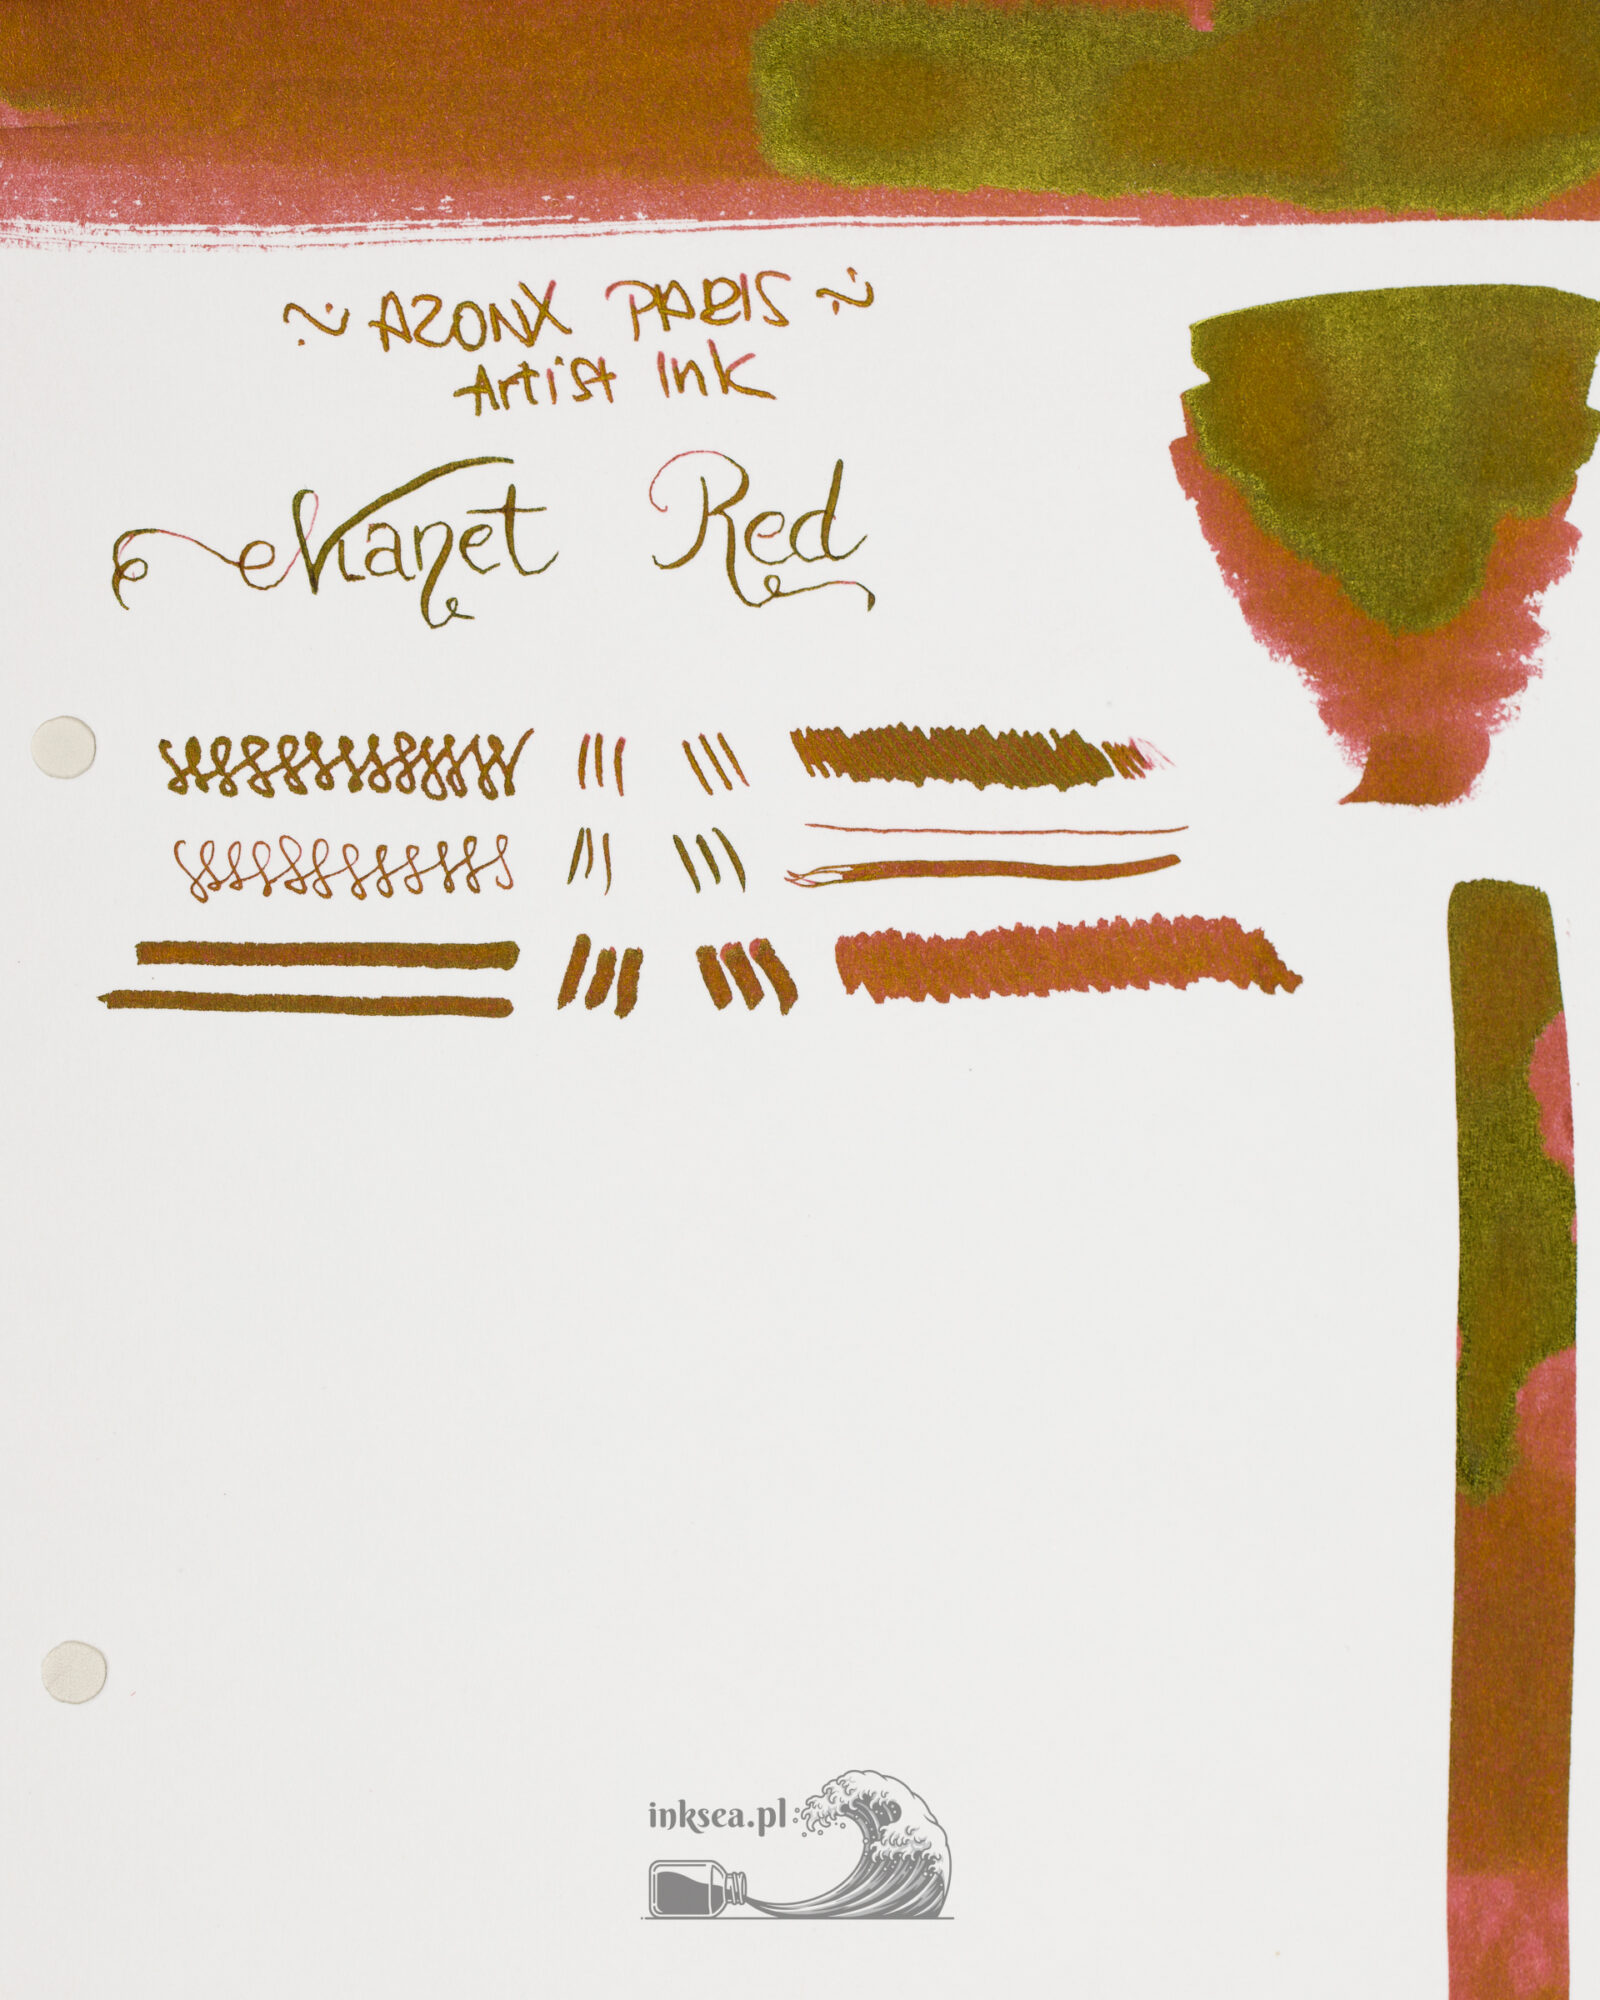 ~ AZONX PARIS ~
Artist Ink
Manet Red
inksea.pl